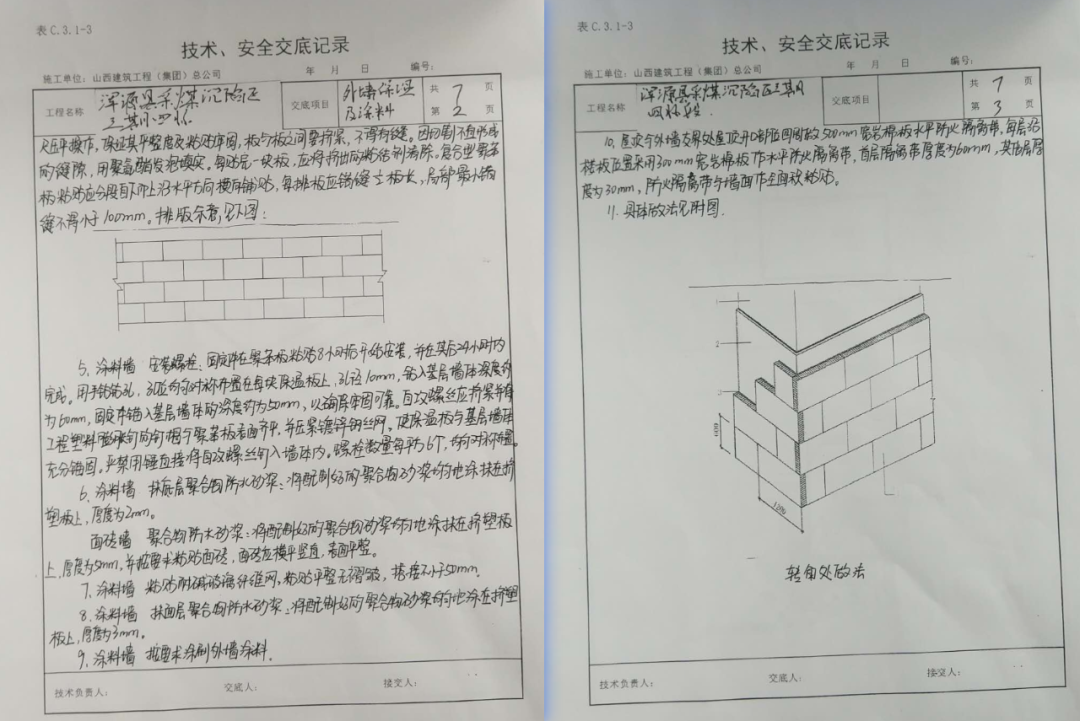 表C.3.1-3
技术、安全交底记录
施工单位：山西建筑工程（集团）总公司 年 月 日 编号：
工程名称
浑源县采煤沉陷区
三期四标
交底项目
外墙保温
及涂料
共 7 页
第 2 页
尺压平操作，保证其平整度及粘贴牢固，板与板之间要挤紧，不得有缝。因切割不直形成
的缝隙，用聚氨酯发泡填实。每贴完一块板，应将挤出的粘结剂清除。复合型聚苯
板粘贴应分段自下而上沿水平方向横向铺贴，每排板应错缝1/2板长，局部最小错
缝不得小于100mm。排版示意见下图：
5、涂料墙 安装螺栓：固定件在聚苯板粘贴8小时后开始安装，并在其后24小时内
完成。用手钻钻孔，孔位均匀对称布置在每块保温板上，孔径10mm，钻入基层墙体深度约
为60mm，固定件锚入基层墙体的深度约为50mm，以确保牢固可靠。自攻螺丝应挤紧并将
工程塑料膨胀钉的钉帽与聚苯板表面齐平，并压紧镀锌钢丝网。使保温板与基层墙体
充分锚固。严禁用锤直接将自攻螺丝钉入墙体内。螺栓数量每平方6个，均匀对称布置。
6、涂料墙 抹底层聚合物防水砂浆：将配制好的聚合物砂浆均匀地涂抹在挤
塑板上，厚度为2mm。
面砖墙 聚合物防水砂浆：将配制好的聚合物砂浆均匀地涂抹在挤塑板
上，厚度为5mm，并按要求粘贴面砖，面砖应横平竖直，表面平整。
7、涂料墙 粘贴耐碱玻璃纤维网，粘贴平整无褶皱，搭接不小于50mm。
8、涂料墙 抹面层聚合物防水砂浆：将配制好的聚合物砂浆均匀地涂在挤塑
板上，厚度为3mm。
9、涂料墙 按要求涂刷外墙涂料.
技术负责人： 交底人： 接交人：
表C.3.1-3
技术、安全交底记录
施工单位：山西建筑工程（集团）总公司 年 月 日 编号：
工程名称
浑源县采煤沉陷区三期
四标段
交底项目
共 7 页
第 3 页
10、屋顶与外墙交界处屋顶开口部位四周做500mm宽岩棉板水平防火隔离带，每层沿
楼板位置采用300mm宽岩棉板作水平防火隔离带，首层隔离带厚度为60mm，其他层厚
度为30mm，防火隔离带与墙面作全面积粘贴。
11、具体做法见附图.
1
2
3
600
1200
转角处做法
技术负责人： 交底人： 接交人：